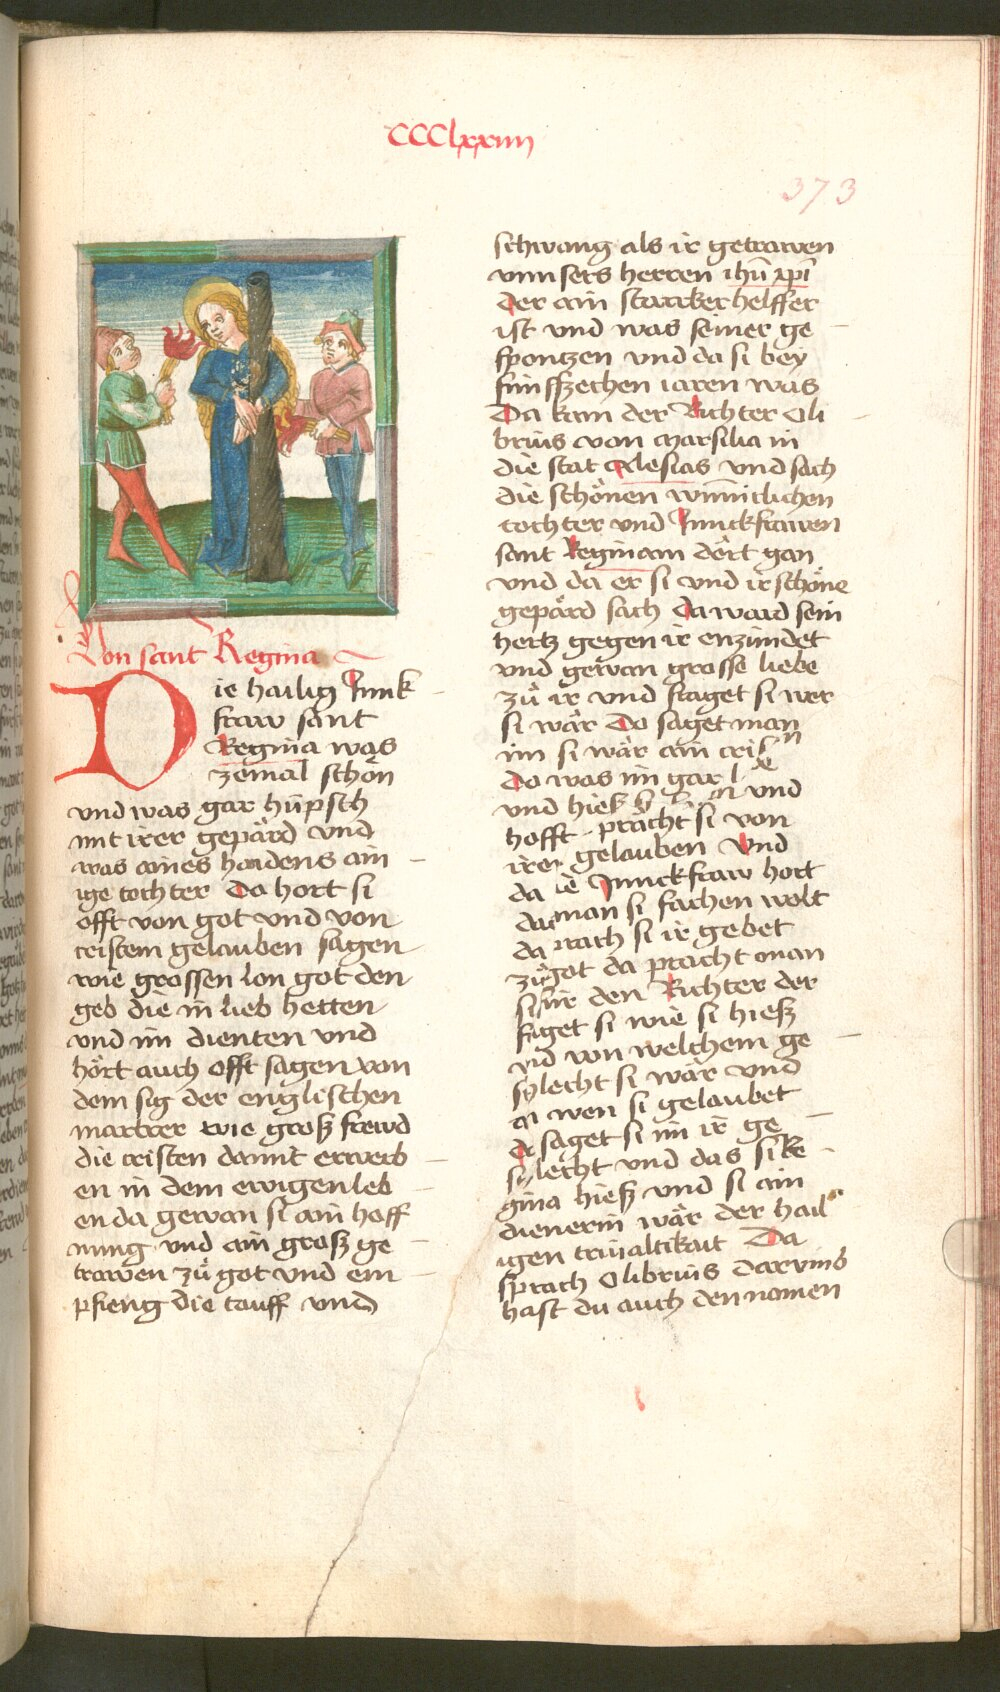 CCClxxiiii
373
Von sant Regina
Die hailig Junk
fraw sant
Regina was
zemal schön
vnd was gar hüpsch
mit irer gepärd vnd
was aines haidens ain
ige tochter Da hort si
offt von got vnd von
cristem gelauben sagen
wie grossen lon got den
geb die in lieb hetten
vnd im dienten vnd
hört auch offt sagen von
dem sig der englischen
martrer wie groß frewd
die cristen damit erwerb
en in dem ewigen leb
en da gewan si ain hoff
nung vnd ain groß ge
trawen zů got vnd em
pfieng die tauff vnd
schwang als ir getrawen
vnnsers herren ihū xpī
Der ain starcker helffer
ist vnd was seiner ge
spontzen vnd da si bey
fünffzechen iaren was
Da kam der Richter Oli
brius von Marsilia in
die stat Alesias vnd sach
die schönen wīnīclichen
tochter vnd Junckfrawen
sant Reginam dort gan
vnd da er si vnd ir schöne
gepärd sach Da ward sein
hertz gegen ir enzündet
vnd gewan grosse liebe
zů ir vnd fraget si wer
si wär Do saget man
im si wär ain cris
Da was im gar
vnd hieß vnd
hofft prächt si von
iren gelauben Vnd
da ie Junckfraw hort
das man si fachen wolt
da sprach si ir gebet
zů got da pracht man
si für den Richter der
fraget si wie si hieß
vnd von welchem ge
schlecht si wär vnd
an wen si gelaubet
Da saget si im ir ge
schlecht vnd das si Re
gina hieß vnd si ain
dienerin wär der hail
igen triualtikait Da
sprach Olibrius darvmb
hast du auch den nomen